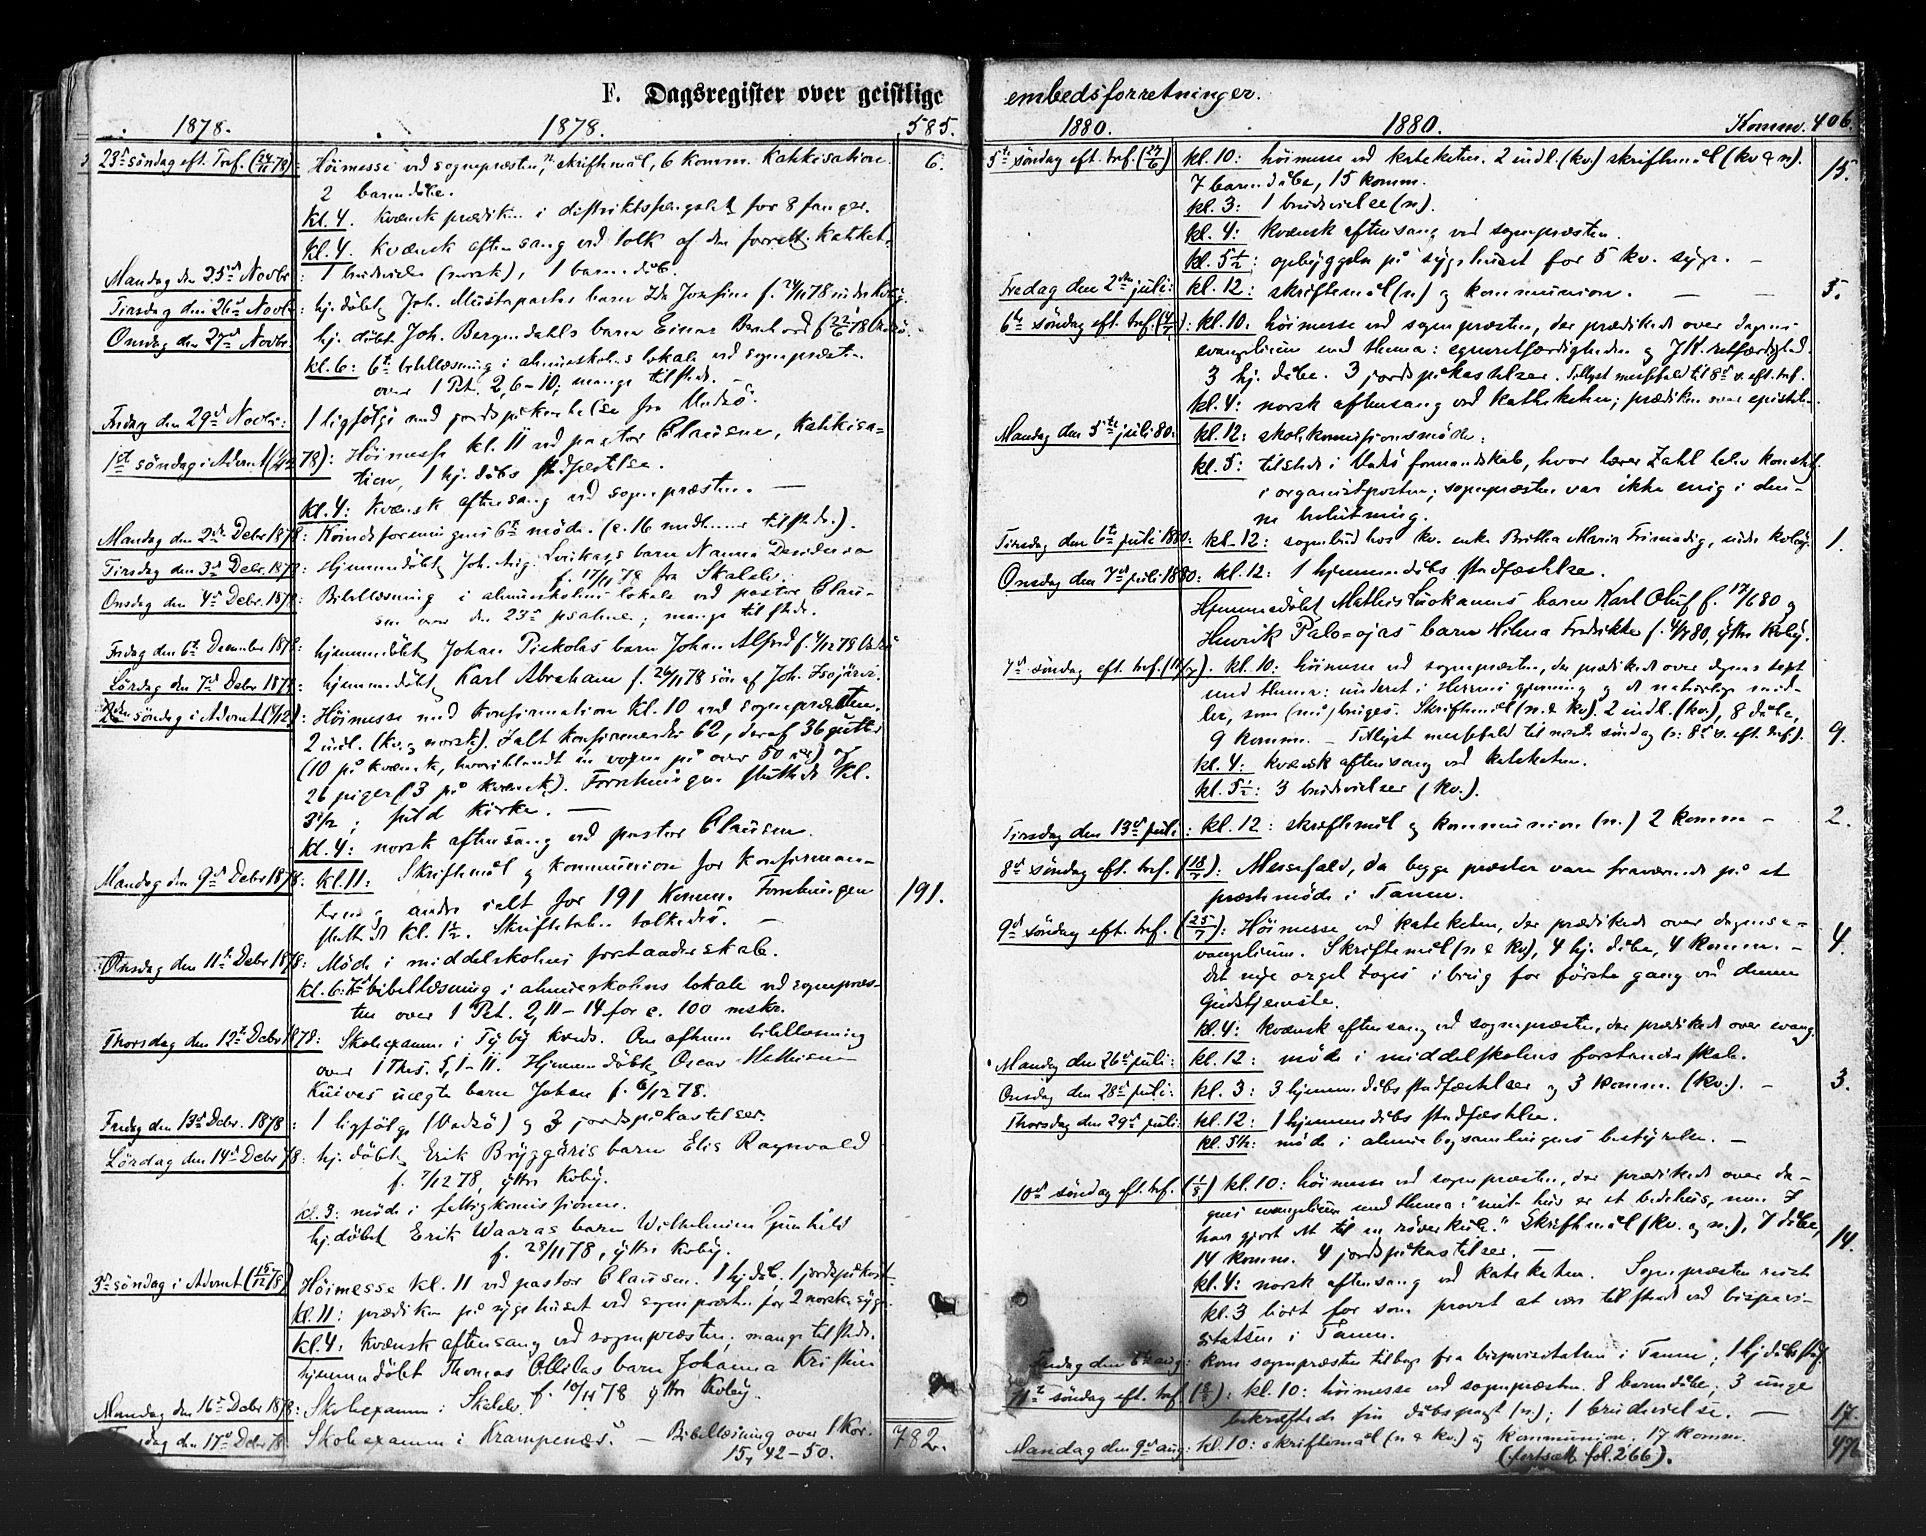 F. Dagsregister over geistlige
1878. 1878. 585.
23de søndag eft. Tref. (24/11 78): Höimesse ved sognepræsten, skriftemål, 6 komm. Katekisation. 6.
2 barnedåbe.
kl. 4. Kvænsk prædiken i distriktsfængslet for 8 fanger.
kl. 4. Kvænsk aftensang ved tolk af den forrett. kateket.
Mandag den 25de Novbr: 1 brudevielse (norsk), 1 barnedåb.
Tirsdag den 26de Novbr: hj. döbt Joh. barn Ida Josefine f. 78
Onsdag den 27de Novbr. hj. döbt Joh. Bergendahls barn Einar Bernhard f. 78 Vadsö.
kl. 6: 6te bibellæsning i almueskolens lokale ved sognepræsten
over 1 Pet. 2, 6-10, mange tilstede.
Fredag den 29de Novbr: 1 ligfölge med jordspåkastelse fra Vadsö.
1st söndag i Advent (1/12 78): Höimesse kl. 11 ved pastor Clausen, katekisa=
tion, 1 hj. dåbs stadfæstelse.
kl. 4: Kvænsk aftensang ved sognepræsten. —
Mandag den 2den Debr 1878: Kvindeforeningens 6te möde. (c. 16 medlemmer tilstede.).
Tirsdag den 3de Debr. 1878: Hjemmedöbt Joh. Aug. barn Nanna Desideria
f. 17/11 78 fra Skalelv.
Onsdag den 4de Debr. 1878: Bibellæsning i almueskolens lokale ved pastor Clau-
sen over den 23de psalme; mange tilstede.
Fredag den 6te December 1878: hjemmedöbt Johan Pickolas barn Johan Alfred f. 1/12 78 Vadsö
Lördag den 7de Debr 1878: hjemmedöbt Karl Abraham f. 26/11 78 sön af Joh. Isojärvi.
2den söndag i Advent (8/12): Höimesse med konfirmation kl. 10 ved sognepræsten.
2 indl. (kv. og norsk). Ialt konfirmerede 62, deraf 36 gutter
(10 på kvænsk, hvoriblandt en voxen på over 50 år) og
26 piger (13 på kvænsk). Forretningen sluttede kl.
3 1/2; fuld kirke. —
kl. 4: norsk aftensang ved pastor Clausen.
Mandag den 9de Debr 1878: kl. 11: Skriftemål og kommunion for konfirman-
terne og andre ialt for 191 Komm. Forretningen 191.
sluttede kl. 1 1/2. Skriftetalen tolkedes. —
Onsdag den 11te Debr 1878: Möde i middelskolens forstanderskab.
kl. 6: 7de bibellæsning i almueskolens lokale ved sognepræs-
ten over 1 Pet. 2, 11-14 for c. 100 mskr.
Thorsdag den 12te Debr 1878: Skolexamen i Tyby kreds. Om aftenen bibellæsning
over 1 Thes. 5, 1-11. Hjemmedöbt Oscar Mathisen
Knives uægte barn Johan f. 6/12 78.
Fredag den 13de Debr. 1878: 1 ligfölge (Vadsö) og 3 jordspåkastelser
Lördag den 14de Debr 78: hj. döbt Erik Bryggäris barn Elis Ragnvald
f. 7/12 78, ytre Kvby.
kl. 3: möde i fattigkomissionen.
hj. döbt Erik Waaras barn Wilhelmine Gunhild
f. 28/11 78, ytre Kvby.
3de söndag i Advent (15/12 78) Höimesse kl. 11 ved pastor Clausen. 1 hj. dåb. 1 jordspåkast.
kl. 11: prædiken på sygehuset ved sognepræsten for 2 norske syge.
kl. 4: kvænsk aftensang ved sognepræsten; mange tilstede.
hjemmedöbt Thomas Ollilas barn Johanna Kristine
f. 10/11 78 ytre Kvby.
Mandag den 16de Debr 1878: Skolexamen i Skalelv.
Tirsdag den 17de Debr 78. Skolexamen i Krampenæs. — Bibellæsning over 1 Kor.
15, 42-50. 782.
embedsforretninger.
1880. 1880. Komm. 406.
5te söndag eft. tref. (27/6) kl. 10: höimesse ved kateketen. 2 indl. (kv.) skriftemål (kv & n).
7 barnedåbe, 15 komm. 15.
kl. 3: 1 brudevielse (n).
kl. 4: kvænsk aftensang ved sognepræsten.
kl. 5 1/2: opbyggelse på sygehuset for 5 kv. syge. —
Fredag den 2den juli: kl. 12: skriftemål (n) og kommunion. — — 5.
6te söndag eft. tref. (4/7): kl. 10. höimesse ved sognepræsten, der prædikede over dagens
evangelium med thema: egenretfærdigheden og J. K. retfærdighed.
3 hj. dåbe. 3 jordspåkastelser. Tillyst messefald til 8de s. eft. tref.
kl. 4: norsk aftensang ved kateketen; prædiken over epistelen.
Mandag den 5te juli 80: kl. 12: skolekommissionsmöde.
kl. 5: tilstede i Vadsö formandskab, hvor lærer Zahl blev konstit.
i organistposten; sognepræsten var ikke enig i den-
ne beslutning.
Tirsdag den 6te juli 1880: kl. 12: sognebud hos kv. enke Britha Maria, indre kvby. 1.
Onsdag den 7de juli 1880: kl. 12: 1 hjemmedåbs stadfæstelse.
Hjemmedöbt Mathis barn Karl Oluf f. 17/6 80 og
Henrik Palo=ojas barn Hilma Fredrikke f. 4/7 80, ytre Kvby.
7de söndag eft. tref. (11/7). kl. 10: höimesse ved sognepræsten, der prædikede over dagens text
med thema: underet i Herrens gjerning og de naturlige mid-
ler, som (må) bruges. Skriftemål (n. & kv). 2 indl. (kv.), 8 dåbe,
9 komm. — Tillyst messefald til næste söndag (o: 8de s. eft. tref.). 9.
kl. 4: kvænsk aftensang ved kateketen.
kl. 5 1/2: 3 brudevielser (kv.).
Tirsdag den 13de juli: kl. 12: skriftemål og kommunion (n.) 2 komm — 2.
8de söndag eft. tref. (18/7): Messefald, da begge præster vare fraværende på et
præstemöde i Tanen.
9de söndag eft. tref. (25/7): Höimesse ved kateketen, der prædikede over dagens e-
vangelium. Skriftemål (n & kv), 4 hj. dåbe, 4 komm. — 4.
Det nye orgel toges i brug for förste gang ved denne
Gudstjeneste.
kl. 4: kvænsk aftensang ved sognepræsten, der prædikede over evang.
Mandag den 26de juli: kl. 12: möde i middelskolens forstanderskab.
Onsdag den 28de juli: kl. 3: 3 hjemmedåbsstadfæstelser og 3 komm. (kv.). — 3.
Thorsdag den 29de juli: kl. 12: 1 hjemmedåbs stadfæstelse.
kl. 5 1/2: möde i almuebogsamlingens bestyrelse. —
10de söndag eft. tref. (1/8) kl. 10: höimesse ved sognepræsten, der prædikede over da-
gens evangelium med thema: "mit hus er et bedehus, men I
have gjort det til en röverkule." Skriftemål (kv. og n.), 7 dåbe,
14 komm. 4 jordspåkastelser. — 14.
kl. 4: norsk aftensang ved kateketen. Sognepræsten reiste
kl. 3 bort for som provst at være tilstede ved bispevi-
sitatsen i Tanen.
Fredag den 6te aug: kom sognepræsten tilbage fra bispevisitatsen i Tanen; 1 hj. dåbs stadf.
11te söndag eft. tref. (8/8): kl. 10: höimesse ved sognepræsten. 8 barnedåbe; 3 unge
bekræftede sin dåbspagt (n.); 1 brudevielse. —
Mandag den 9de aug: kl. 10: skriftemål (n & kv.) og kommunion. 17 komm. 17.
(fortsætt. fol. 266). 476